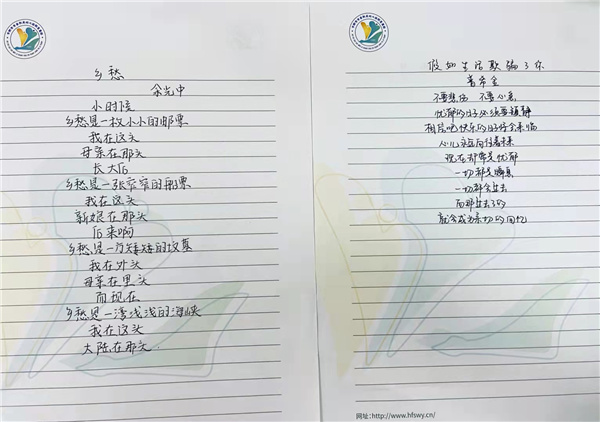 乡愁
余光中
小时候
乡愁是一枚小小的邮票
我在这头
母亲在那头
长大后
乡愁是一张窄窄的船票
我在这头
新娘在那头
后来啊
乡愁是一方矮矮的坟墓
我在外头
母亲在里头
而现在
乡愁是一湾浅浅的海峡
我在这头
大陆在那头
假如生活欺骗了你
普希金
不要悲伤 不要心急
忧郁的日子必须要镇静
相信吧快乐的日子将会来临
心儿永远向往着未来
现在却常是忧郁
一切都是瞬息
一切都会过去
而那过去了的
就会成为亲切的回忆
网址:http://www.hfswy.cn/